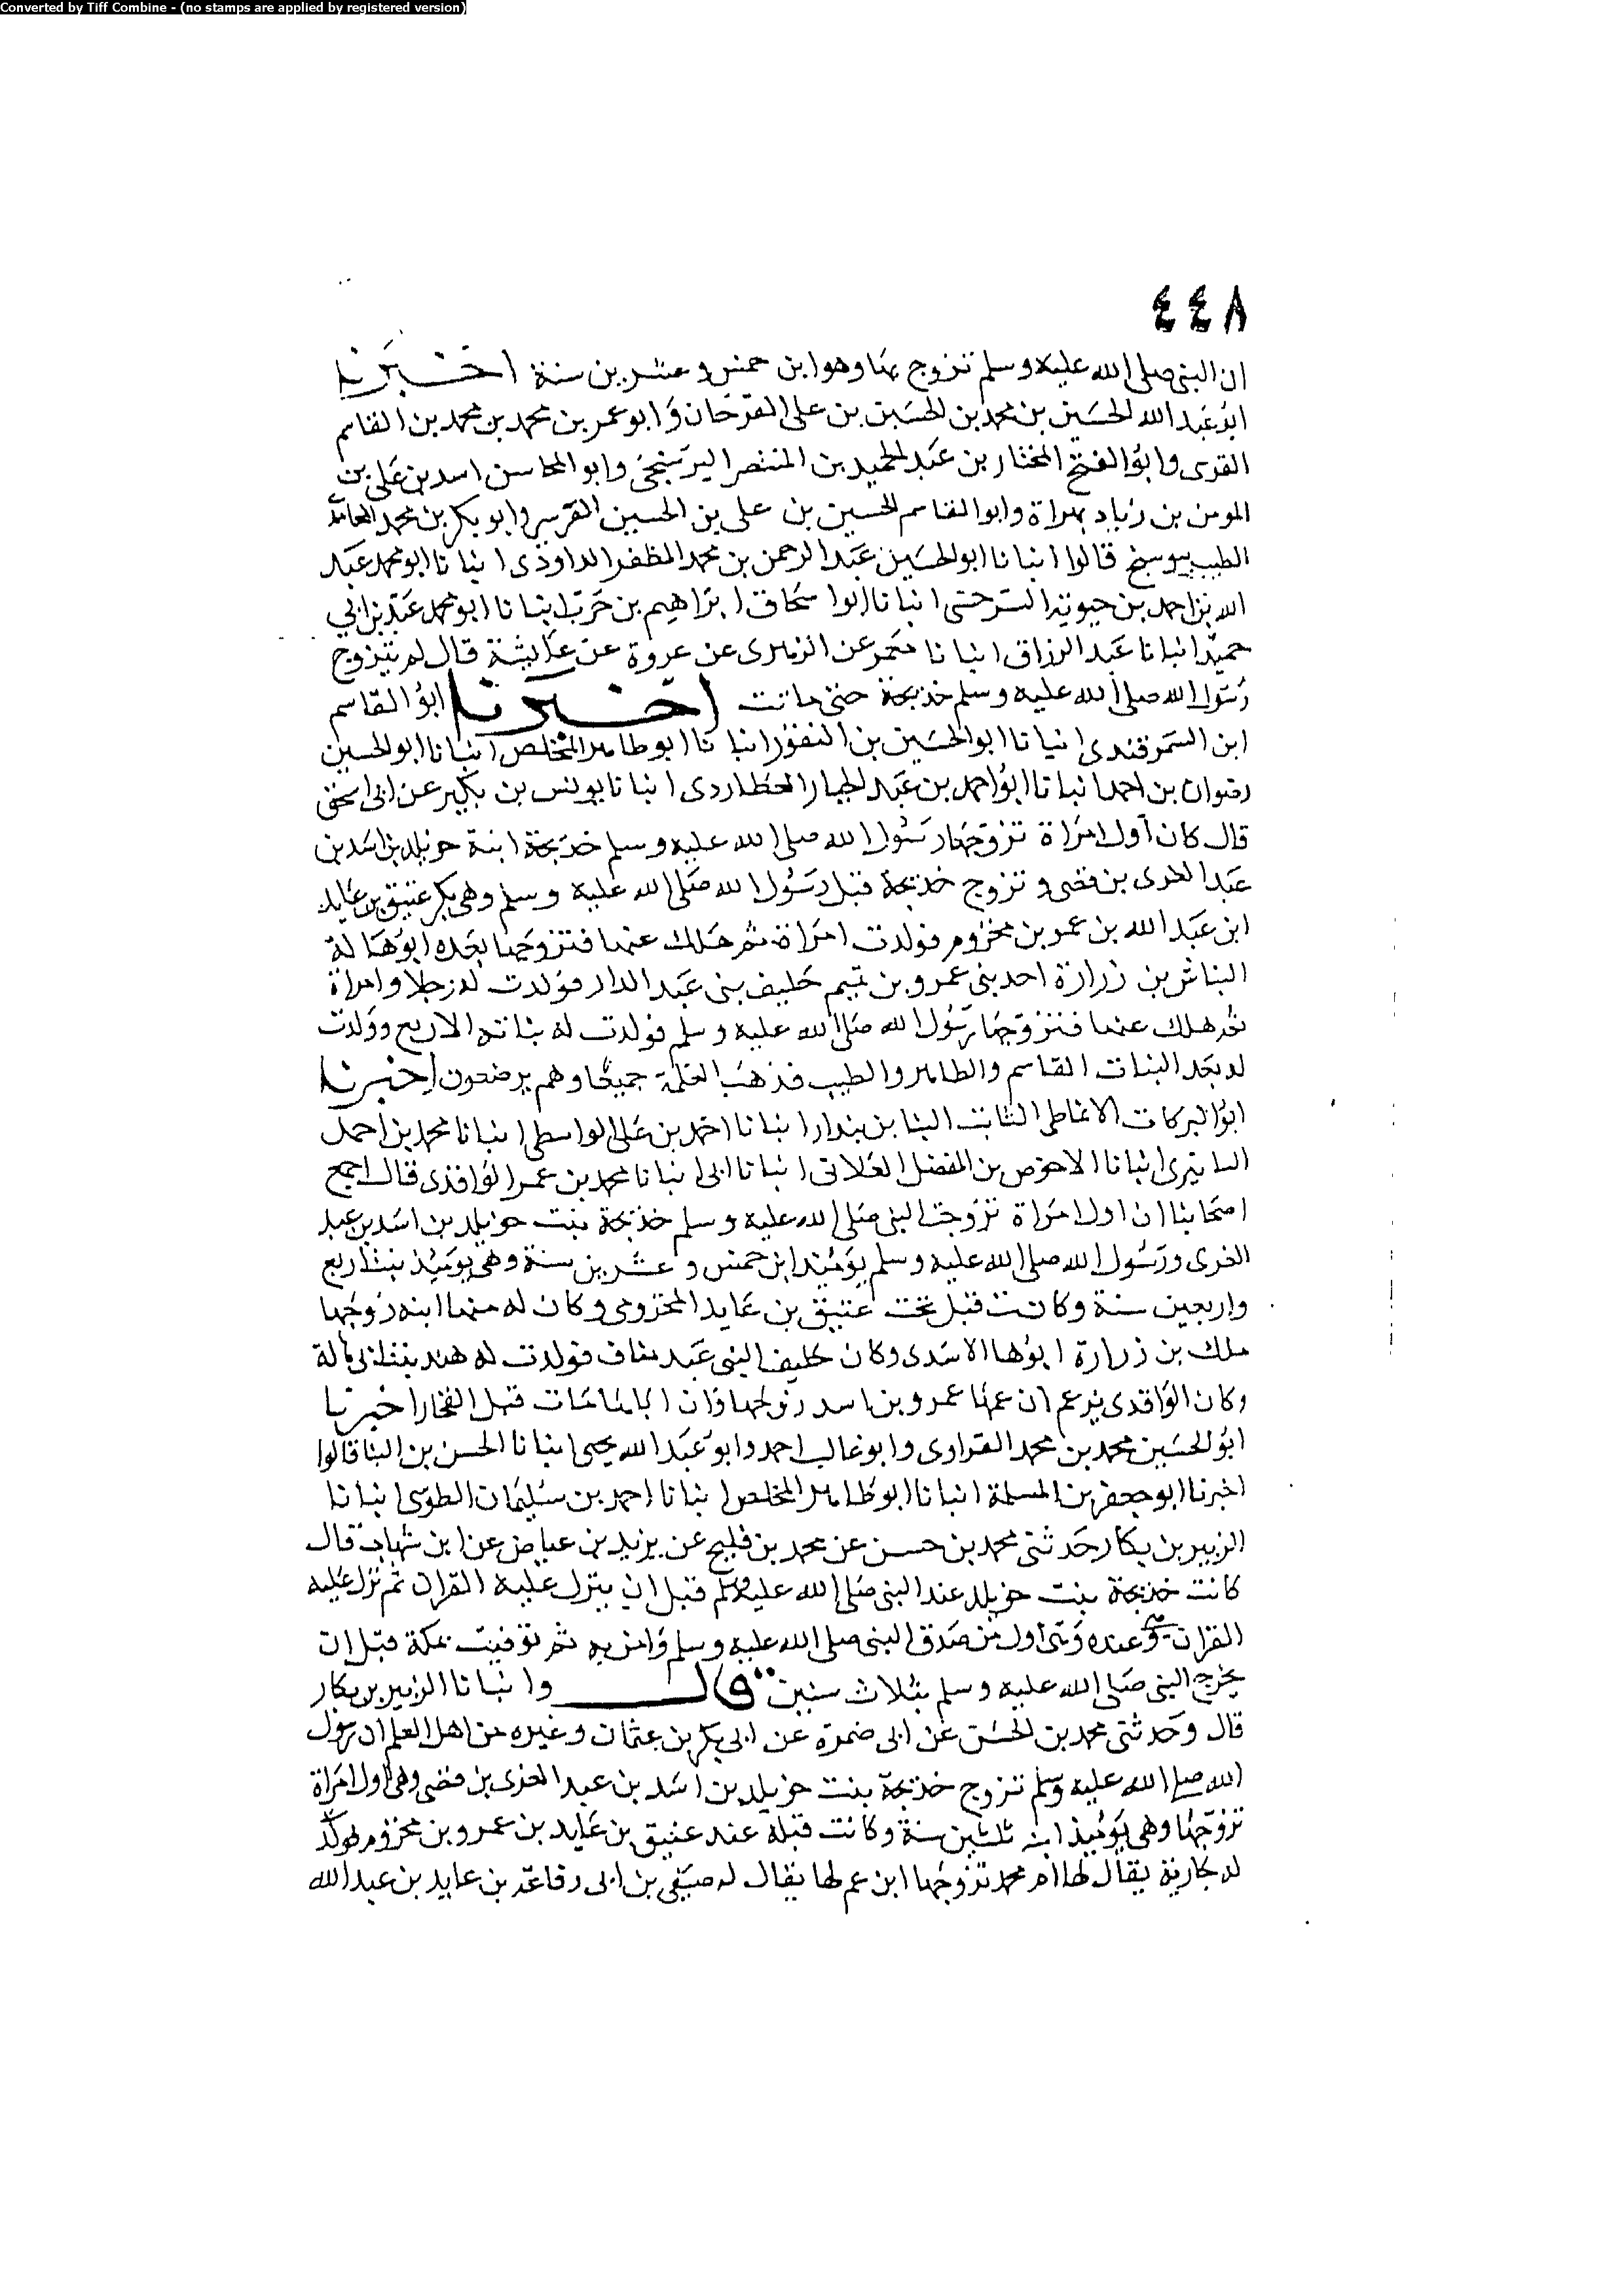 Converted by Tiff Combine - (no stamps are applied by registered version)
٤٤٨
ان النبى صلى الله عليه وسلم تزوج بها وهو ابن خمس وعشرين سنة اخبرنا
ابو عبد الله الحسين بن محمد بن الحسين بن على الفرخان وابو عمر بن محمد بن محمد بن القاسم
القرى وابو الفتح المختار بن عبد الحميد بن المنتصر وابو المحاسن اسد بن على بن
المومن بن زياد بهراة وابو القاسم الحسين بن على بن الحسين وابو بكر بن محمد
الطبيب قالوا انبانا ابو الحسين عبد الرحمن بن محمد المظفر الداوذى انبانا ابو محمد عبد
الله بن احمد بن حيوية السرخسى انبانا ابوا سحاق ابراهيم بن انبانا ابو محمد عبد بن ابي
حميد انبانا عبد الرزاق انبانا معمر عن الزهرى عن عروة عن عايشة قال لم يتزوج
رسول الله صلى الله عليه وسلم خديجة حتى ماتت اخبرنا ابو القاسم
ابن السمرقندى انبانا ابو الحسين بن النقور انبانا ابو طاهر المخلص انبانا ابو الحسين
رضوان بن احمد انبانا ابو احمد بن عبد الجبار العطاردى انبانا يونس بن بكير عن ابى اسحق
قال كان اول امراة تزوجها رسول الله صلى الله عليه وسلم خديجة ابنة خويلد بن اسد بن
عبد العزى بن قصى وتزوج خديجة قبل رسول الله صلى الله عليه وسلم وهى بكر عتيق بن عايد
ابن عبد الله بن عمر بن مخزوم فولدت امراة ثم هلك عنها فتزوجها بعده ابو هالة
النباش بن زرارة احد بنى عمرو بن تميم حليف بنى عبد الدار فولدت له رجلا وامراة
ثم هلك عنها فتزوجها رسول الله صلى الله عليه وسلم فولدت له بناته الاربع وولدت
له بعد البنات القاسم والطاهر والطيب فذهب الغلمة جميعا وهم يرضعون اخبرنا
ابو البركات الانماطى الثابت البنا بن بندار انبانا احمد بن على الواسطى انبانا محمد بن احمد
انبانا الاحوص بن المفضل الغلابى انبانا ابى انبانا محمد بن عمر الواقدى قال اجمع
اصحابنا ان اول امراة تزوجت النبى صلى الله عليه وسلم خديجة بنت خويلد بن اسد بن عبد
العزى ورسول الله صلى الله عليه وسلم يوميذ ابن خمس وعشرين سنة وهى يوميذ بنت اربع
واربعين سنة وكانت قبل تحت عتيق بن عايد المخزومى وكان له منها ابنه زوجها
ملك بن زرارة ابوها الاسدى وكان حليف لبنى عبد مناف فولدت له هند بنت ابى هالة
وكان الواقدى يزعم ان عمها عمرو بن اسد زوجها وان اباها مات قبل الفجار اخبرنا
ابو الحسين محمد بن محمد الفراوى وابو غالب احمد وابو عبد الله يحيى انبانا الحسن بن البنا قالوا
اخبرنا ابو جعفر بن المسلمة انبانا ابو طاهر المخلص انبانا احمد بن سليمان الطوسى انبانا
الزبير بن بكار حدثنى محمد بن حسن عن محمد بن فليح عن يزيد بن عياض عن ابن شهاب قال
كانت خديجة بنت خويلد عند النبى صلى الله عليه وسلم قبل ان ينزل عليه القران ثم نزل عليه
القران وهى عنده وهى اول من صدق النبى صلى الله عليه وسلم وامن به ثم توفيت بمكة قبل ان
يخرج النبى صلى الله عليه وسلم بثلاث سنين قال وانبانا الزبير بن بكار
قال وحدثنى محمد بن الحسن عن ابى ضمرة عن ابى بكر بن عثمان وغيره من اهل العلم ان رسول
الله صلى الله عليه وسلم تزوج خديجة بنت خويلد بن اسد بن عبد العزى بن قصى وهى اول امراة
تزوجها وهى يوميذ ابنه ثلثين سنة وكانت قبله عند عتيق بن عايد بن عمرو بن مخزوم فولد
له جارية يقال لها ام محمد تزوجها ابن عم لها يقال له صيفى بن ابى رفاعة بن عايد بن عبد الله